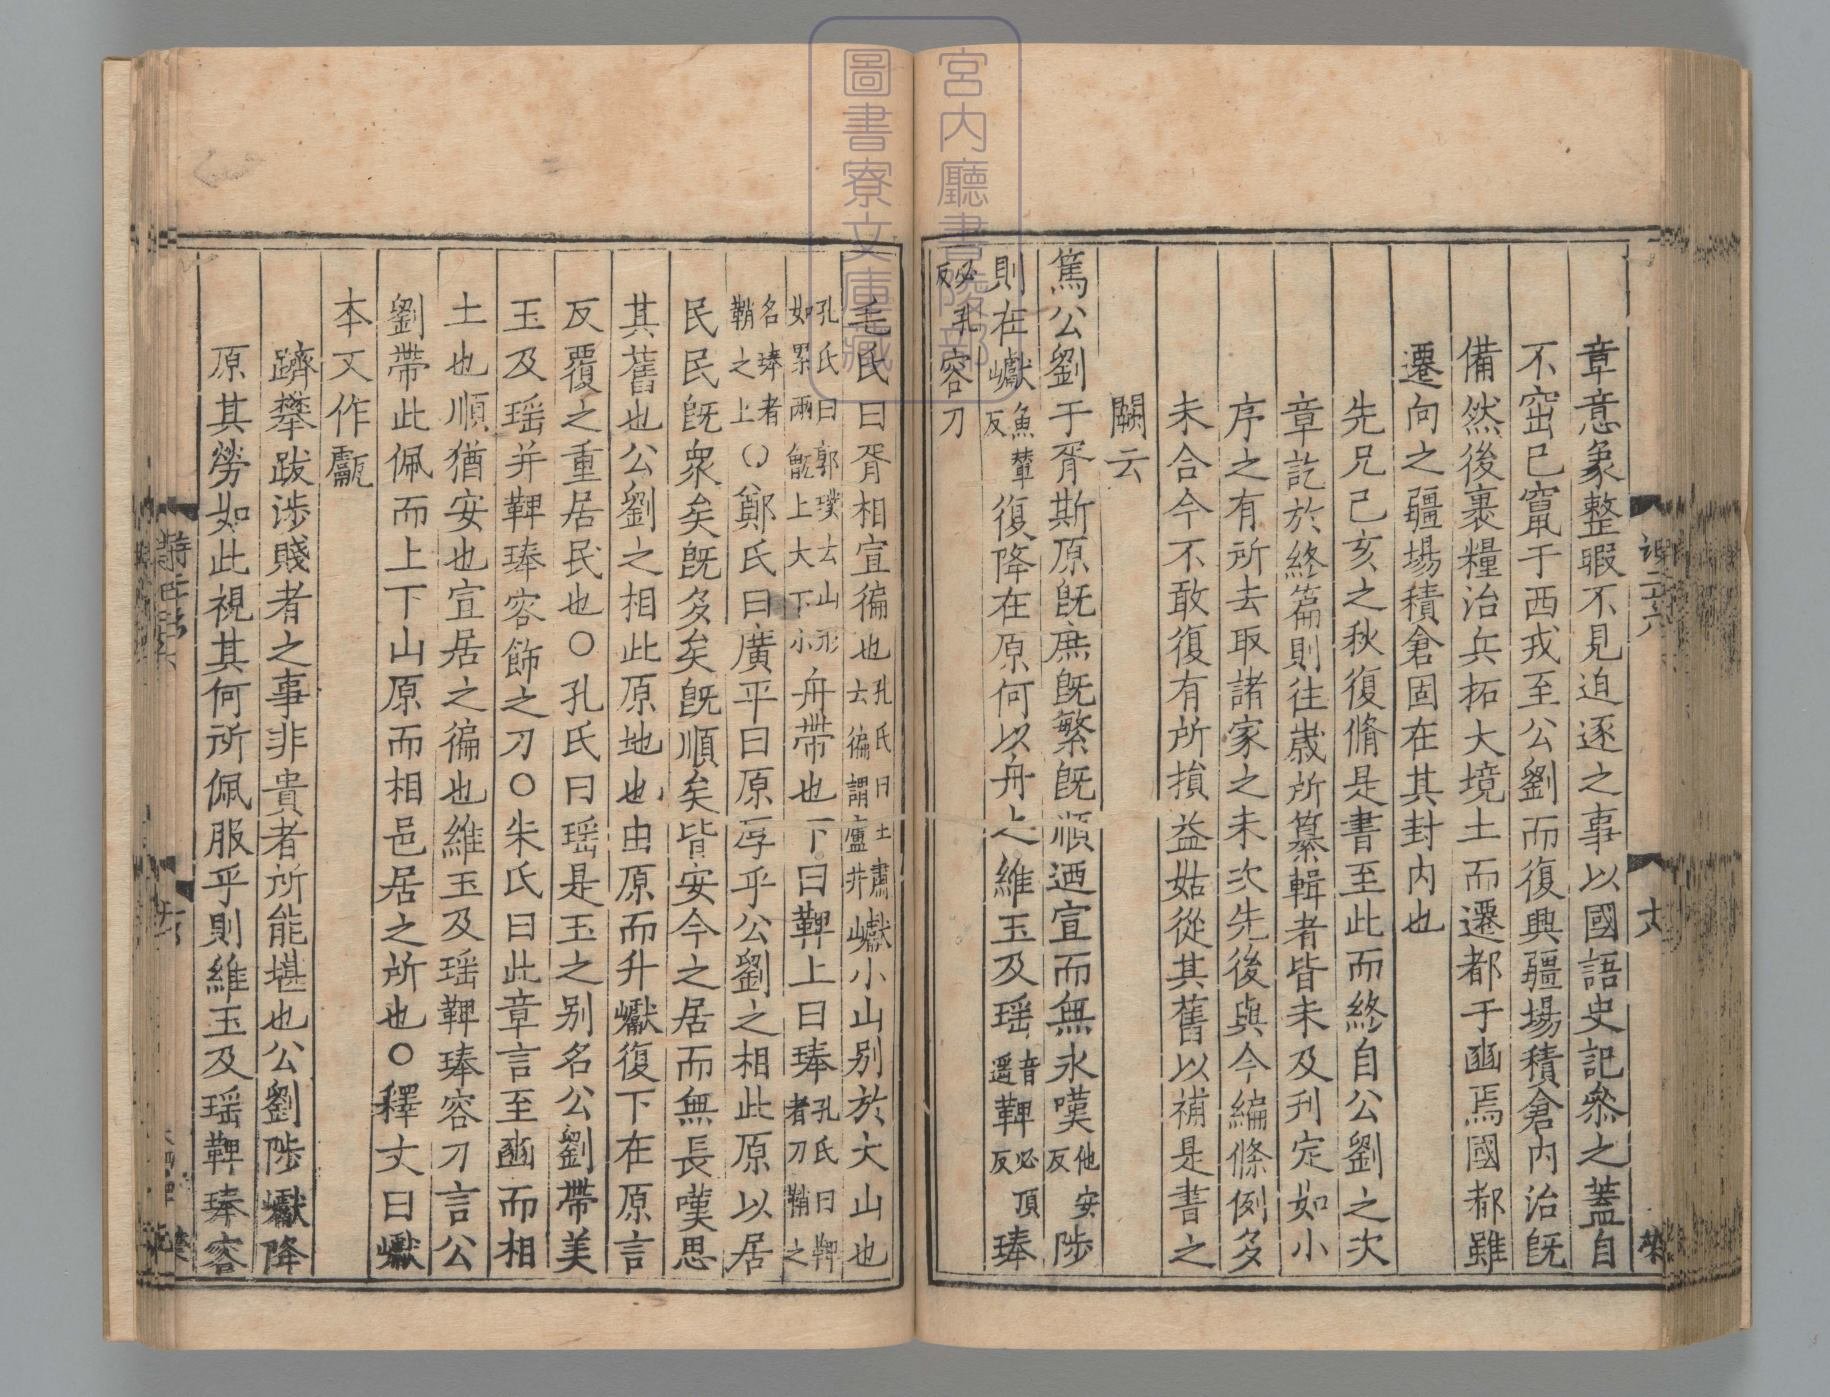 章意象整暇不見迫逐之事以國語史記參之蓋自
不窋已竄于西戎至公劉而復興疆場積倉内治旣
備然後裹糧治兵拓大境土而遷都于豳焉國都雖
遷向之疆場積倉固在其封内也
先兄己亥之秋復脩是書至此而終自公劉之次
章訖於終篇則往歲所纂輯者皆未及刊定如小
序之有所去取諸家之未次先後與今編條例多
未合今不敢復有所損益姑從其舊以補是書之
闕云
篤公劉于胥斯原旣庶旣繁旣順迺宣而無永嘆他安反陟
則在巘魚輦反復降在原何以舟之維玉及瑶音遥鞞必頂反琫
必孔反容刀
毛氏曰胥相宣徧也孔氏曰宣徧謂廬井巘小山别於大山也
孔氏曰郭璞云山形如累兩甑上大下小舟帶也下曰鞞上曰琫孔氏曰鞞者刀鞘之
名琫者鞘之上○鄭氏曰廣平曰原厚乎公劉之相此原以居
民民旣衆矣旣多矣旣順矣皆安今之居而無長嘆思
其舊也公劉之相此原地也由原而升巘復下在原言
反覆之重居民也○孔氏曰瑶是玉之别名公劉帶美
玉及瑶并鞞琫容飾之刀○朱氏曰此章言至豳而相
土也順猶安也宣居之徧也維玉及瑶鞞琫容刀言公
劉帶此佩而上下山原而相邑居之所也○釋文曰巘
本文作甗
躋攀跋涉賤者之事非貴者所能堪也公劉陟巘降
原其勞如此視其何所佩服乎則維玉及瑶鞞琫容
宮内廳書陵部
圖書寮文庫藏